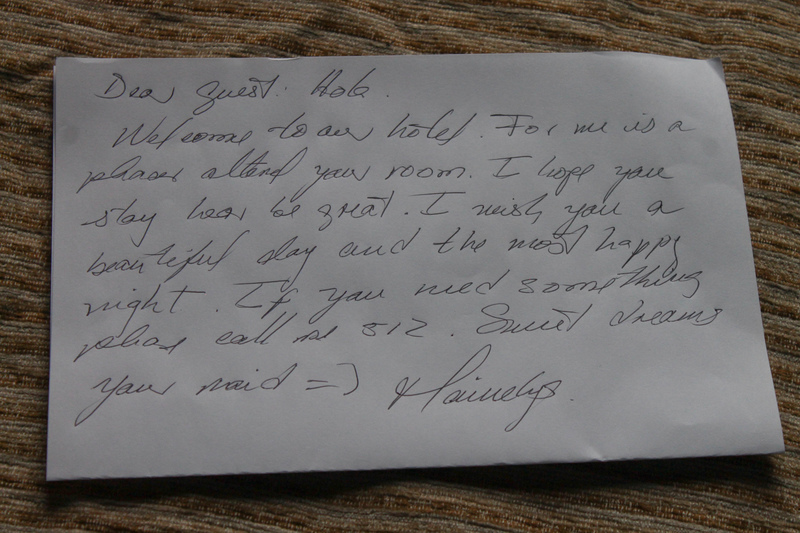 Dear guest: Hola.
Welcome to our hotel. For me is a
pleace attend your room. I hope you
stay hear be great. I wish you a
beautiful day and the most happy
night. If you need something
please call me 512. Sweet dreams
your maid =)